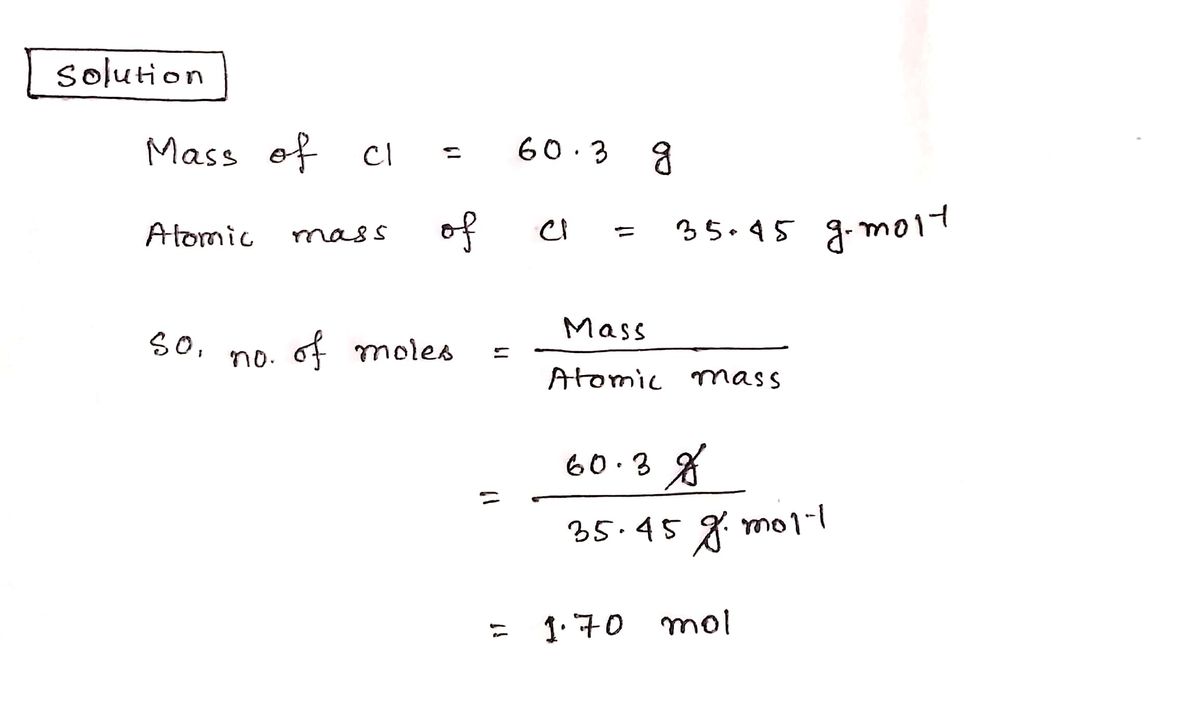 Solution
Mass of Cl = 60.3 g
Atomic mass of Cl = 35.45 g.mol-1
So, no. of moles = Mass
Atomic mass
= 60.3 g
35.45 g.mol-1
= 1.70 mol